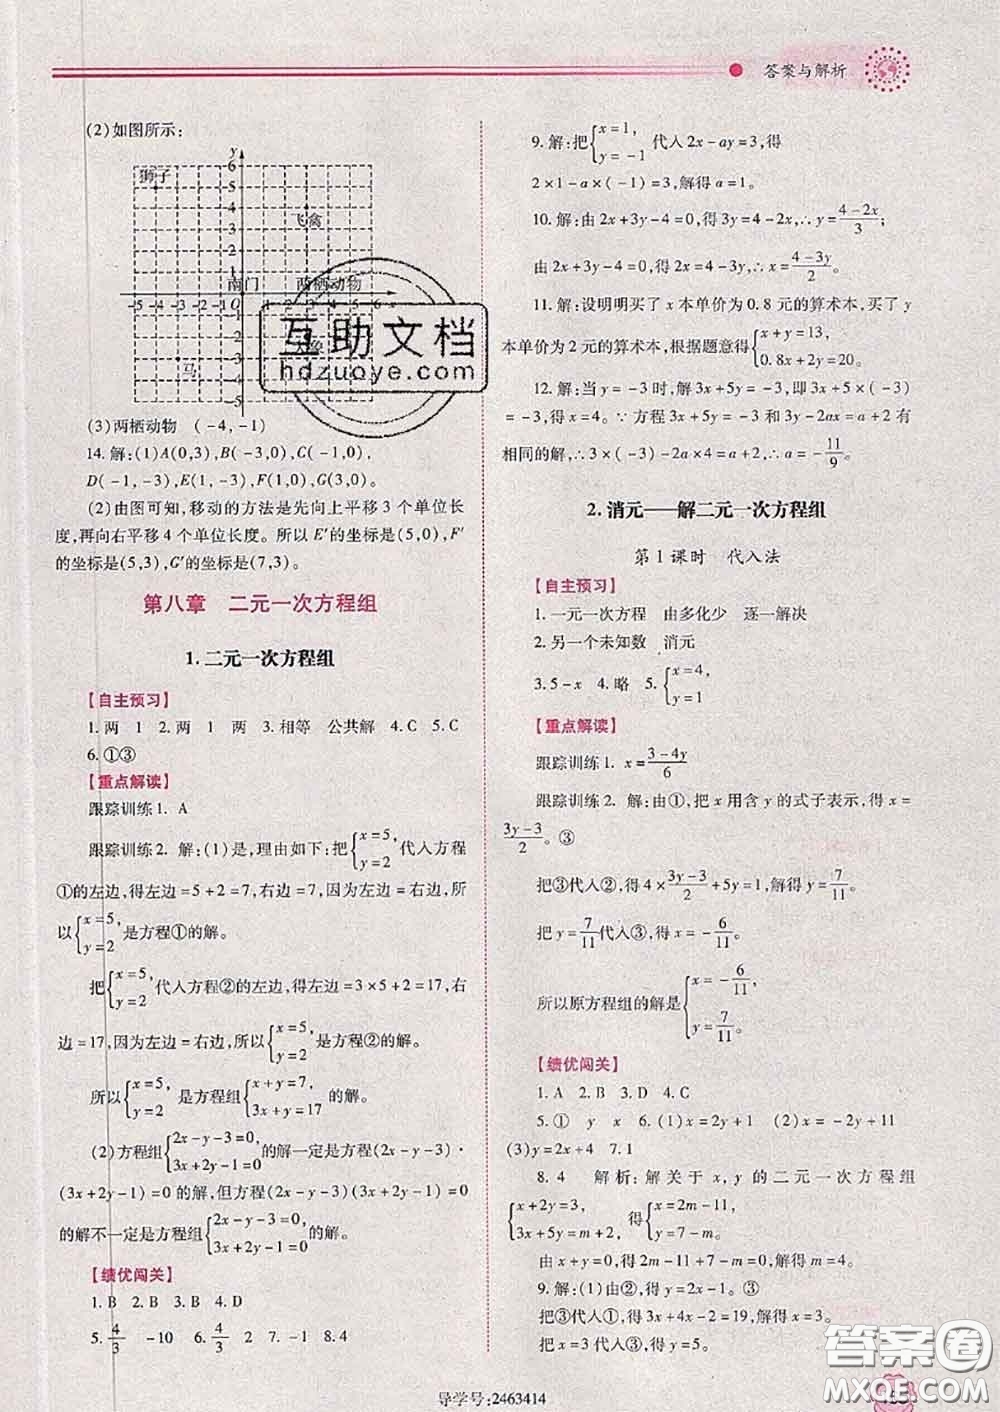 答案与解析
(2)如图所示:
y
6
5
4
3
2
1
狮子
飞禽
南门 两栖动物
-5 -4 -3 -2 -1 O 1 2 3 4 5 6 x
马
(3)两栖动物 (-4,-1)
14.解:(1)A(0,3),B(-3,0),C(-1,0),
D(-1,-3),E(1,-3),F(1,0),G(3,0).
(2)由图可知,移动的方法是先向上平移3个单位长
度,再向右平移4个单位长度。所以E′的坐标是(5,0),F′
的坐标是(5,3),G′的坐标是(7,3)。
第八章 二元一次方程组
1.二元一次方程组
【自主预习】
1.两 1 2.两 1 两 3.相等 公共解 4.C 5.C
6.①③
【重点解读】
跟踪训练1. A
跟踪训练2. 解:(1)是,理由如下:把{x=5, y=2 代入方程
①的左边,得左边=5+2=7,右边=7,因为左边=右边,所
以{x=5, y=2 是方程①的解。
把{x=5, y=2 代入方程②的左边,得左边=3×5+2=17,右
边=17,因为左边=右边,所以{x=5, y=2 是方程②的解。
所以{x=5, y=2 是方程组{x+y=7, 3x+y=17 的解。
(2)方程组{2x-y-3=0, 3x+2y-1=0 的解一定是方程(2x-y-3)·
(3x+2y-1)=0的解,但方程(2x-y-3)(3x+2y-1)=0
的解不一定是方程组{2x-y-3=0, 3x+2y-1=0 的解。
【绩优闯关】
1.B 2.B 3.B 4.D
5. 4/3 -10 6. 4/3 2 7.-1 8.4
9.解:把{x=1, y=-1 代入2x-ay=3,得
2×1-a×(-1)=3,解得a=1。
10.解:由2x+3y-4=0,得3y=4-2x,∴y=(4-2x)/3;
由2x+3y-4=0,得2x=4-3y,∴x=(4-3y)/2。
11.解:设明明买了x本单价为0.8元的算术本,买了y
本单价为2元的算术本,根据题意得{x+y=13, 0.8x+2y=20。
12.解:当y=-3时,解3x+5y=-3,即3x+5×(-3)
=-3,得x=4。∵方程3x+5y=-3和3y-2ax=a+2有
相同的解,∴3×(-3)-2a×4=a+2,解得a=-11/9。
2.消元——解二元一次方程组
第1课时 代入法
【自主预习】
1.一元一次方程 由多化少 逐一解决
2.另一个未知数 消元
3.5-x 4.略 5.{x=4, y=1
【重点解读】
跟踪训练1. x=(3-4y)/6
跟踪训练2. 解:由①,把x用含y的式子表示,得x=
(3y-3)/2。③
把③代入②,得4×(3y-3)/2+5y=1,解得y=7/11。
把y=7/11代入③,得x=-6/11。
所以原方程组的解是{x=-6/11, y=7/11。
【绩优闯关】
1.A 2.B 3.D 4.C
5.① y x 6.(1)x=2y+1 (2)x=-2y+11
(3)y=2x+4 7.1
8.4 解析:解关于x,y的二元一次方程组
{x+2y=3, 3x+5y=m+2, 得{x=2m-11, y=7-m。
由x+y=0,得2m-11+7-m=0,解得m=4。
9.解:(1)由②,得y=2x-1。③
把③代入①,得3x+4x-2=19,解得x=3。
把x=3代入③,得y=5。
导学号:2463414
互助文档
hdzuoye.com
答案圈
MXQE.COM